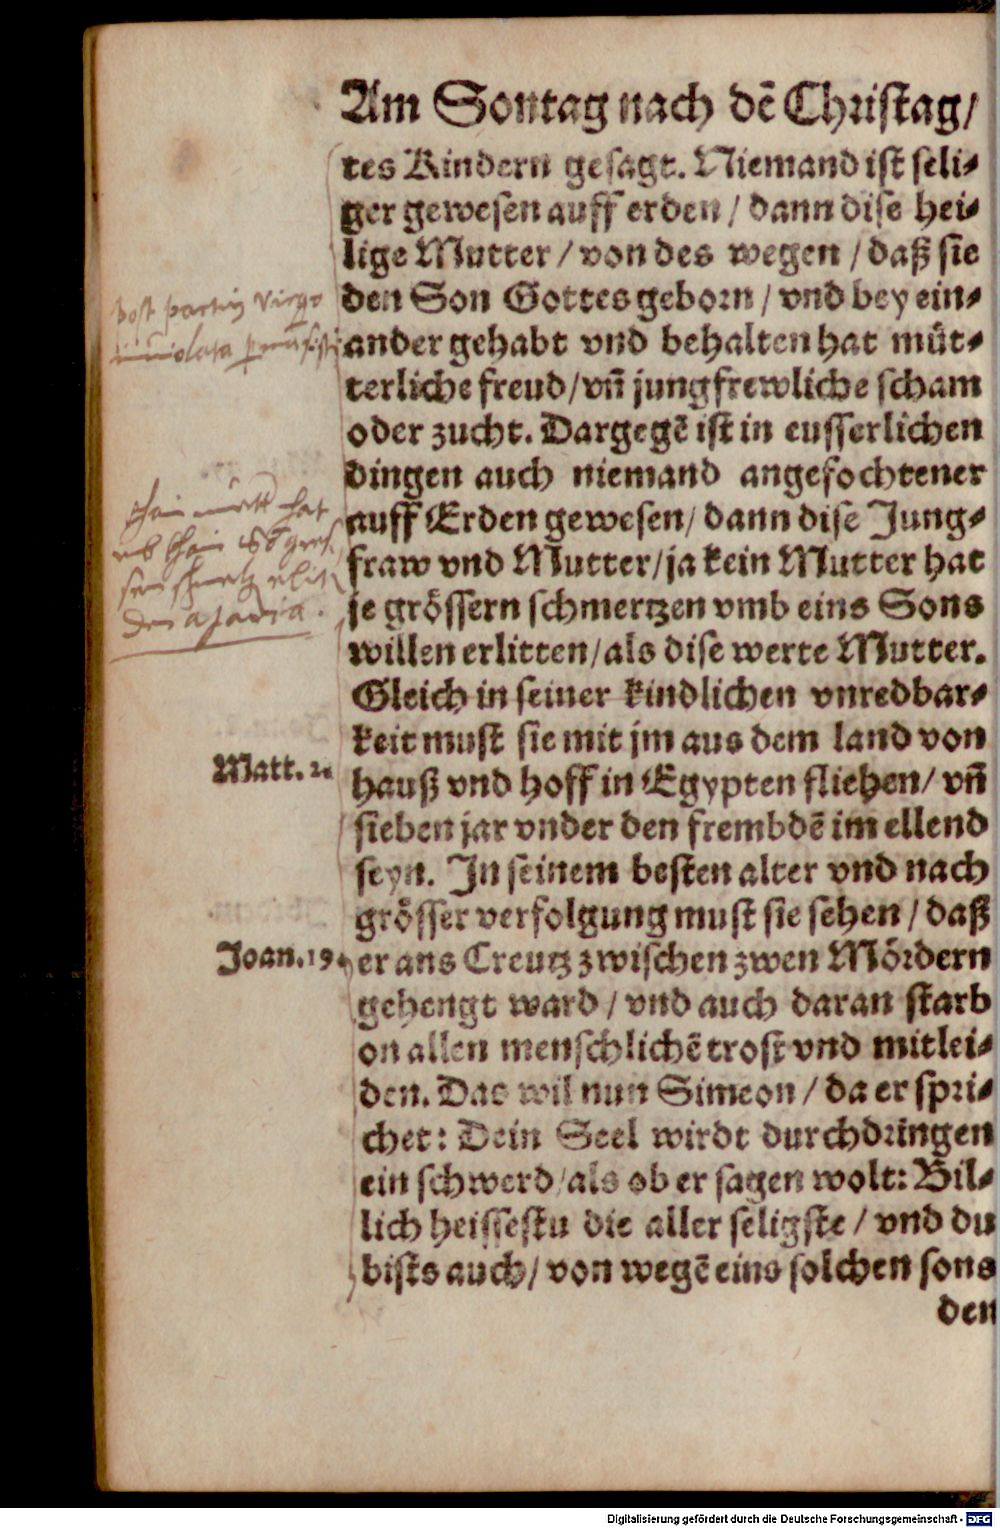 Am Sontag nach dẽ Christag/
tes Kindern gesagt. Niemand ist seli-
ger gewesen auff erden / dann dise hei-
lige Mutter / von des wegen / daß sie
den Son Gottes geborn / vnd bey ein-
ander gehabt vnd behalten hat müt-
terliche freud / vñ jungfrewliche scham
oder zucht. Dargegẽ ist in eusserlichen
dingen auch niemand angefochtener
auff Erden gewesen / dann dise Jung-
fraw vnd Mutter / ja kein Mutter hat
je grössern schmertzen vmb eins Sons
willen erlitten / als dise werte Mutter.
Gleich in seiner kindlichen vnredbar-
keit must sie mit jm aus dem land von
hauß vnd hoff in Egypten fliehen / vñ
sieben jar vnder den frembdẽ im ellend
seyn. In seinem besten alter vnd nach
grösser verfolgung must sie sehen / daß
er ans Creutz zwischen zwen Mördern
gehengt ward / vnd auch daran starb
on allen menschlichẽ trost vnd mitlei-
den. Das wil nun Simeon / da er spri-
chet: Dein Seel wirdt durchdringen
ein schwerd / als ob er sagen wolt: Bil-
lich heissestu die aller seligste / vnd du
bists auch / von wegẽ eins solchen sons
den
post partũ virgo
Matt. 2.
Joan. 19.
Digitalisierung gefördert durch die Deutsche Forschungsgemeinschaft - DFG